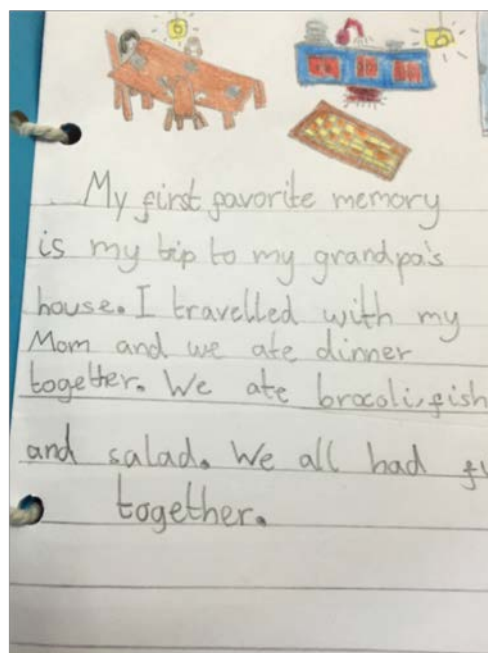 My first favorite memory
is my trip to my grandpa's
house. I travelled with my
Mom and we ate dinner
together. We ate brocoli, fish
and salad. We all had
together.